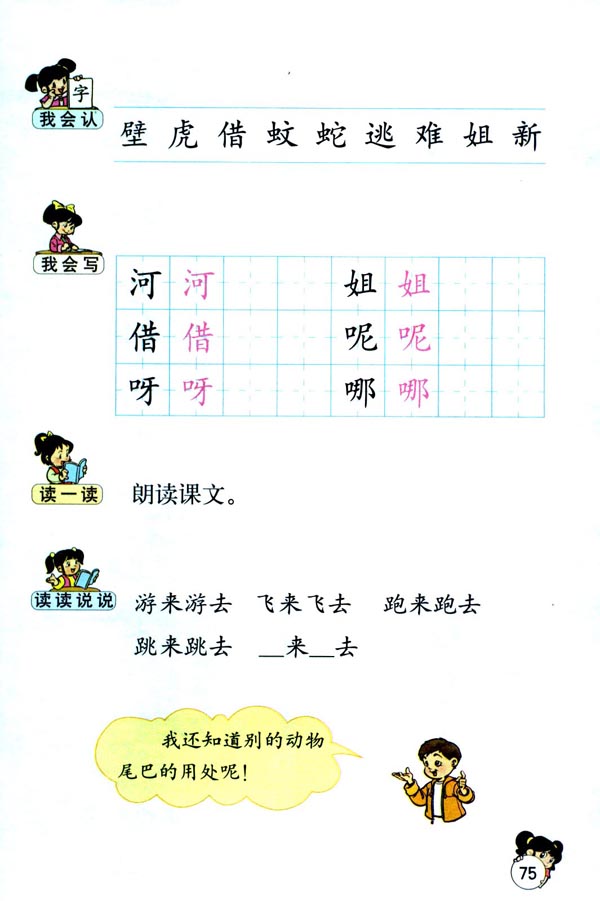 字
我会认
壁 虎 借 蚊 蛇 逃 难 姐 新
我会写
河 河 姐 姐
借 借 呢 呢
呀 呀 哪 哪
读一读
朗读课文。
读读说说
游来游去 飞来飞去 跑来跑去
跳来跳去 __来__去
我还知道别的动物
尾巴的用处呢！
75